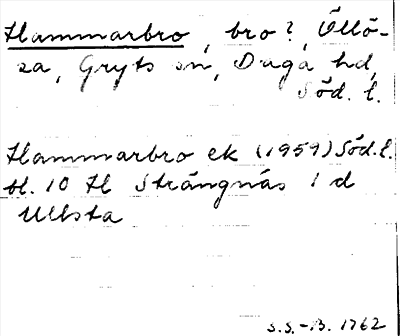 Hammarbro, bro?, Öllö-
za, Gryts sn, Daga hd,
Söd. l.
Hammarbro ek (1959) Söd. l.
bl. 10 H Strängnäs 1 d
Ullsta
S.S.-B. 1762